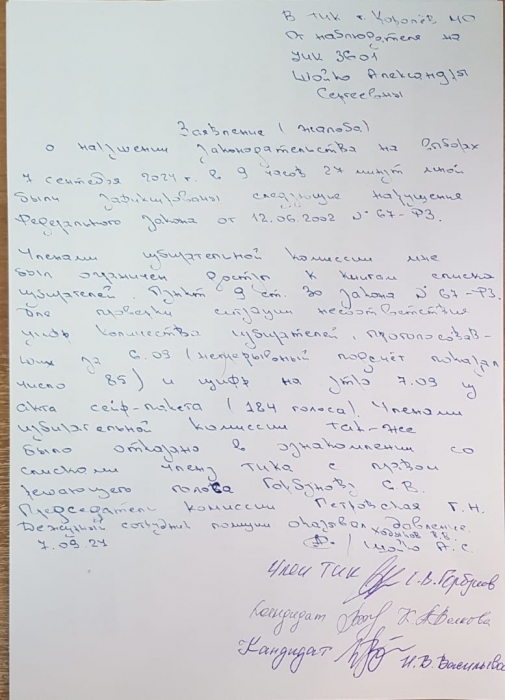 В ТИК г. Королёв МО
От наблюдателя на
УИК 3601
Шойко Александры
Сергеевны
Заявление (жалоба)
о нарушении законодательства на выборах
7 сентября 2024 г. в 9 часов 27 минут мной
были зафиксированы следующие нарушения
Федерального закона от 12.06.2002 № 67-ФЗ.
Членами избирательной комиссии мне
был ограничен доступ к книгам списка
избирателей. Пункт 9 ст. 30 закона № 67-ФЗ.
Для проверки ситуации несоответствия
цифр количества избирателей, проголосовав-
ших за 6.09 (непрерывный подсчёт показал
число 85) и цифр на утро 7.09 из
акта сейф-пакета (184 голоса). Членами
избирательной комиссии так-же
было отказано в ознакомлении со
списками члену тика с правом
решающего голоса Горбунову С.В.
Председатель комиссии Петровская Г.Н.
Дежурный сотрудник полиции оказывал давление.
7.09.24 / Шойко А.С.
Член ТИК С.В. Горбунов
Кандидат
Кандидат И.В. Васильева